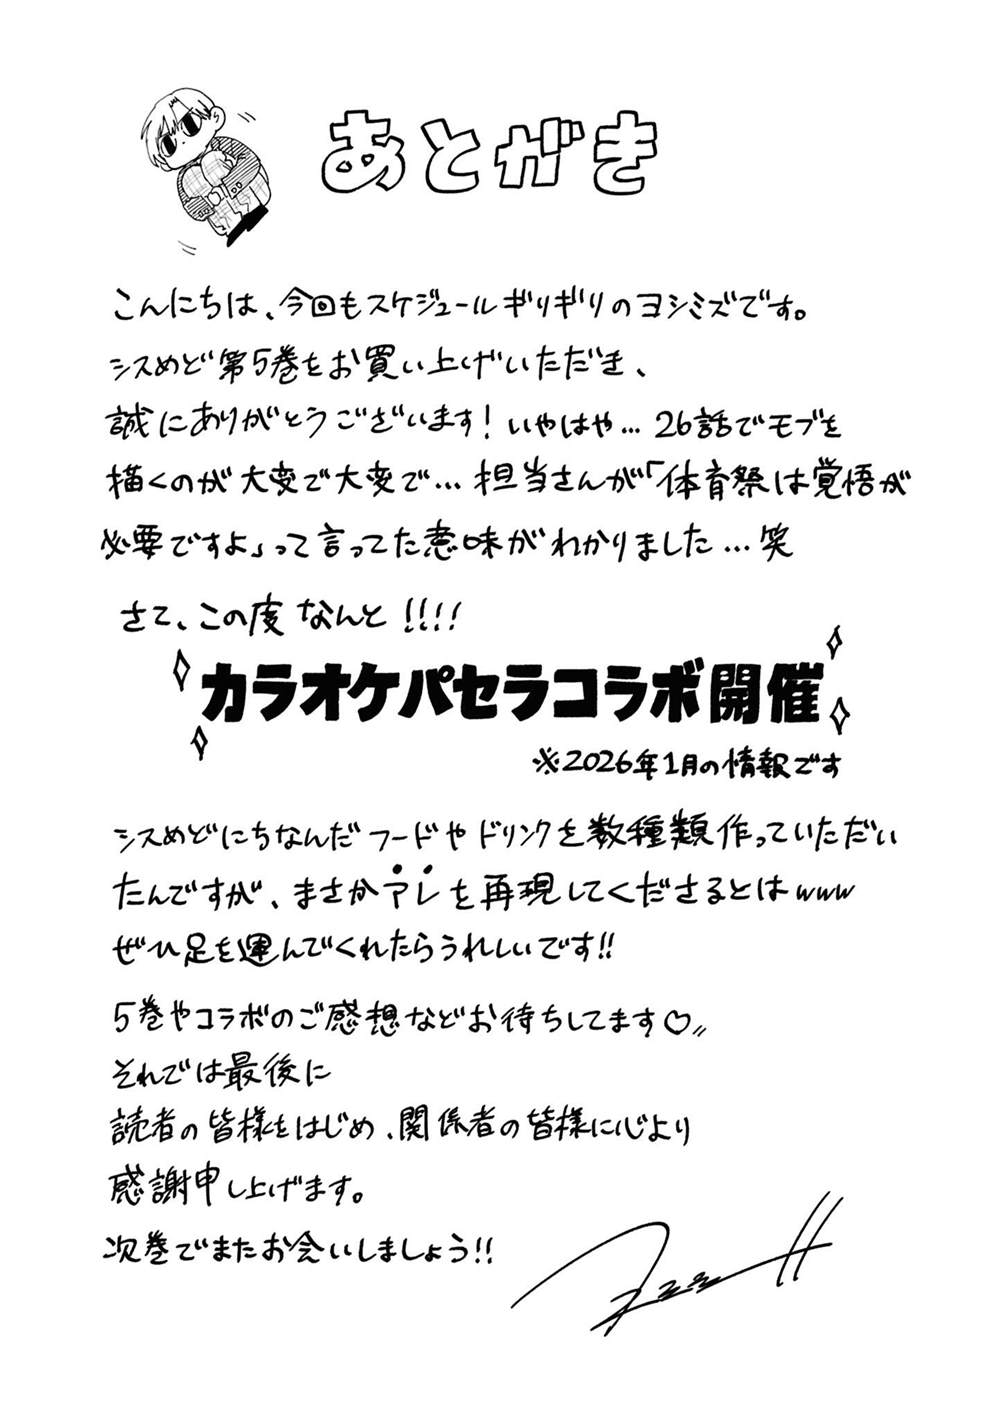 あとがき
こんにちは、今回もスケジュールギリギリのヨシミズです。
シスめど第5巻をお買い上げいただき、
誠にありがとうございます!いやはや…26話でモブを
描くのが大変で大変で…担当さんが「体育祭は覚悟が
必要ですよ」って言ってた意味がわかりました…笑
さて、この度なんと!!!!
カラオケパセラコラボ開催
※2026年1月の情報です
シスめどにちなんだフードやドリンクを数種類作っていただい
たんですが、まさかアレを再現してくださるとはwww
ぜひ足を運んでくれたらうれしいです!!
5巻やコラボのご感想などお待ちしてます♡〃
それでは最後に
読者の皆様をはじめ、関係者の皆様に心より
感謝申し上げます。
次巻でまたお会いしましょう!!